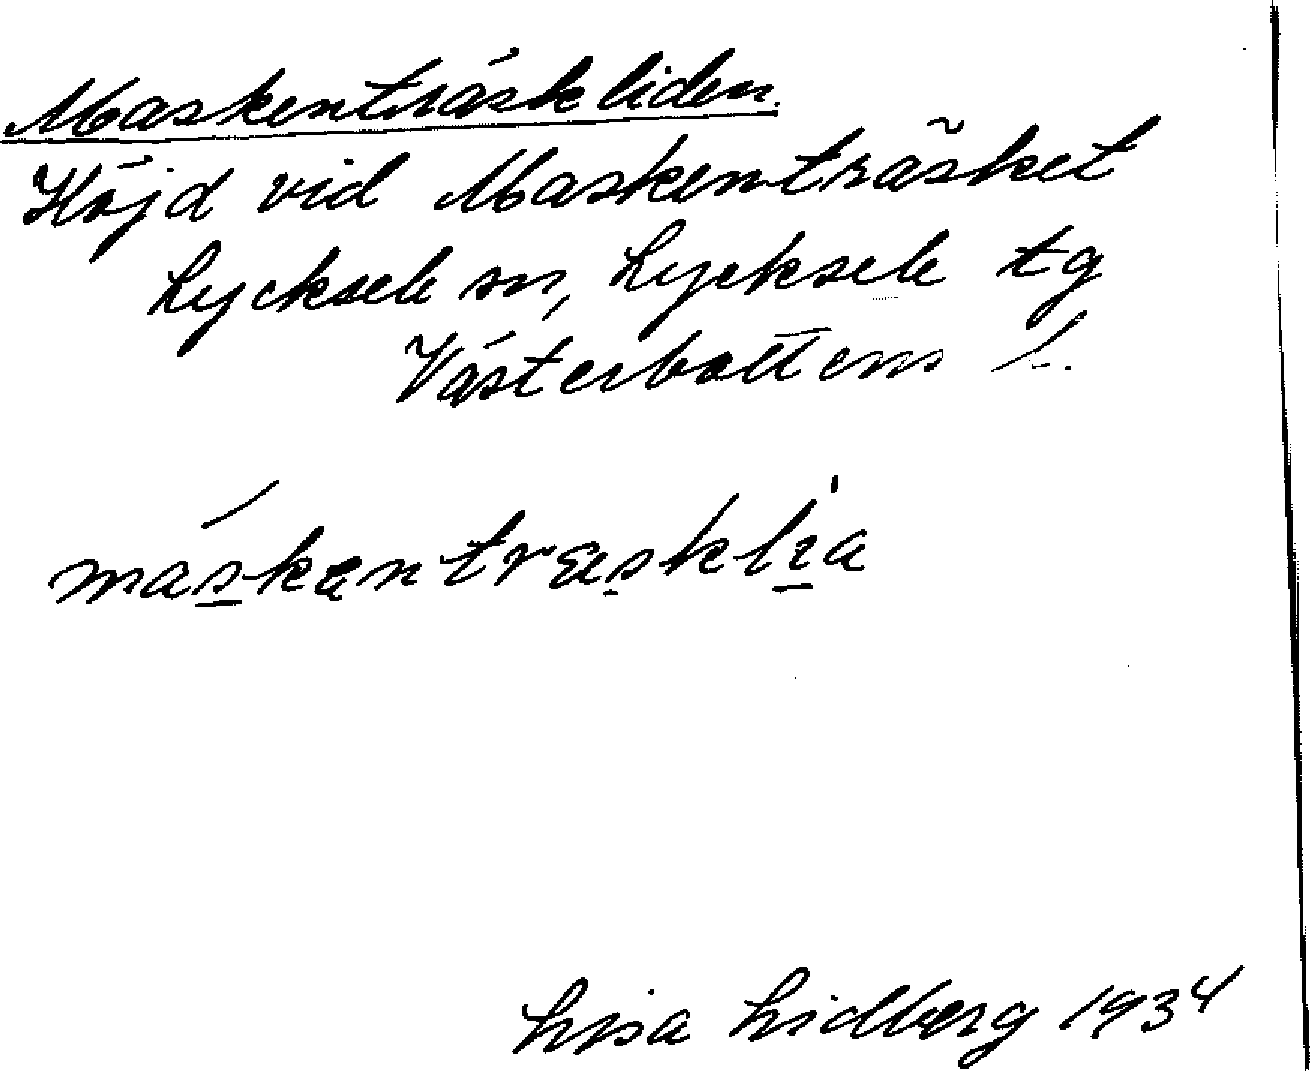 Maskenträskliden.
Höjd vid Maskenträsket
Lycksele sn, Lycksele tg
Västerbottens l.
máskentræsklia
Lisa Lidberg 1934